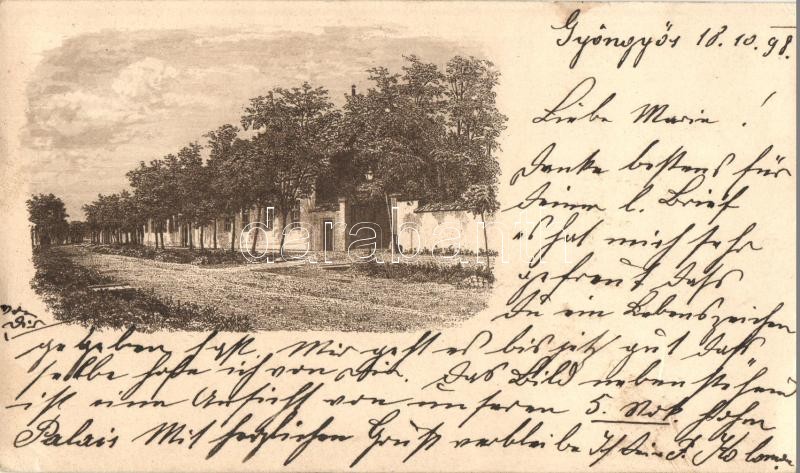 Gyöngyös 18.10.98.
Liebe Marie!
Danke bestens für
deinen l. Brief
es hat mich sehr
gefreut dass
du ein Lebenszeichen
von
Dir
gegeben hast. Mir geht es bis jetz gut dass
selbe hoffe ich von Dir. Das Bild nebenstehend
ist eine Ansicht von unseren 5.
Palais Mit herzlichen Gruß verbleibe Ich dein F.
darabanth